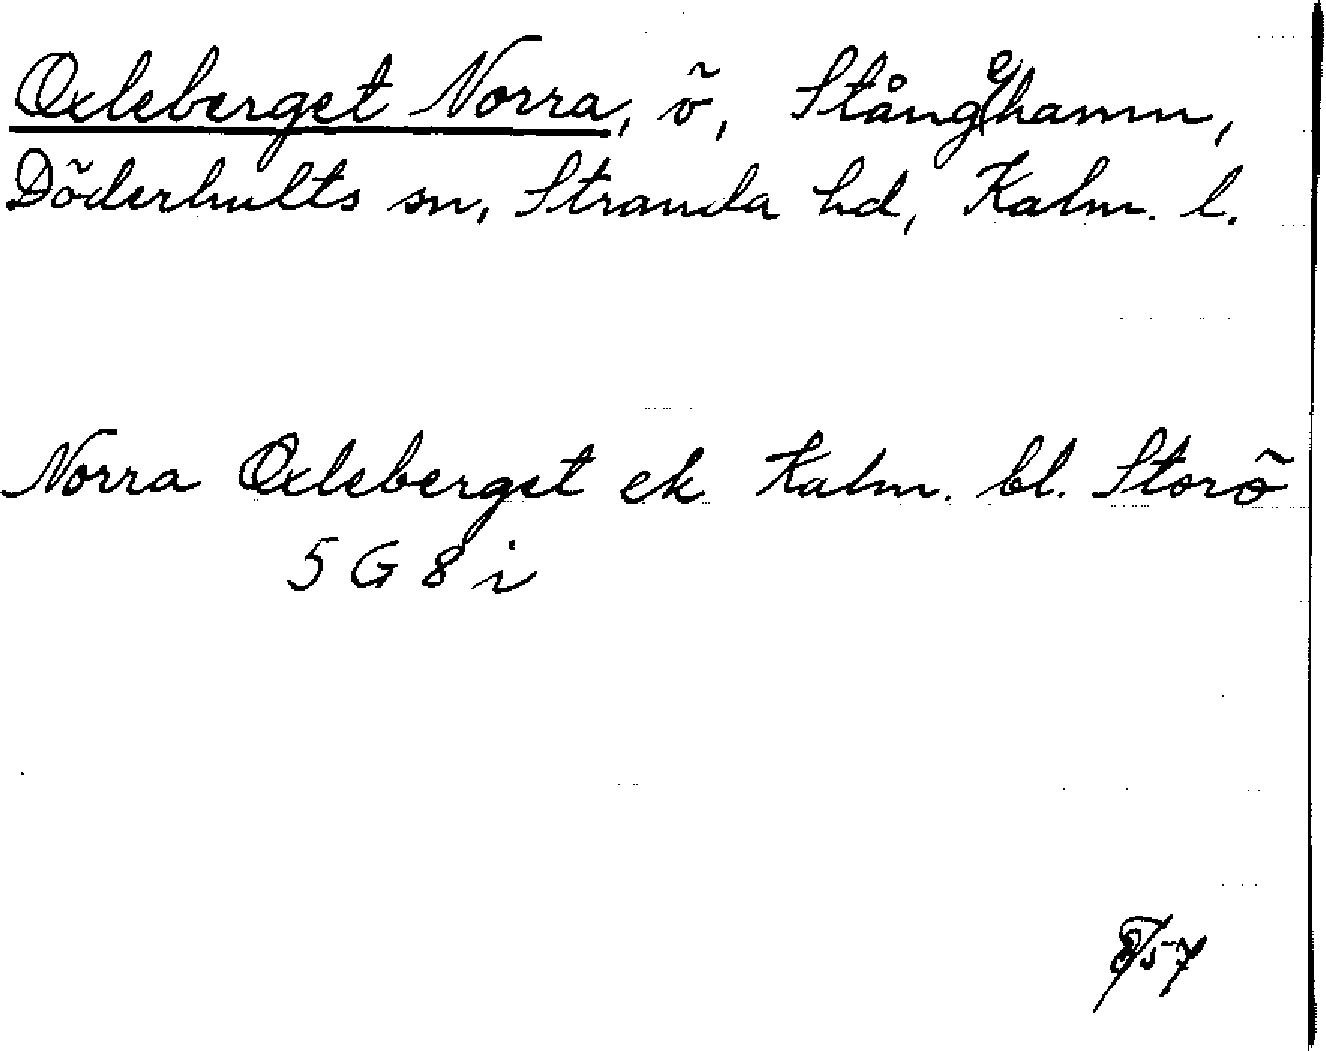 Oxleberget Norra, ö, Stångehamn,
Döderhults sn, Stranda hd, Kalm. l.
Norra Oxleberget ek Kalm. bl. Storö
5 G 8 i